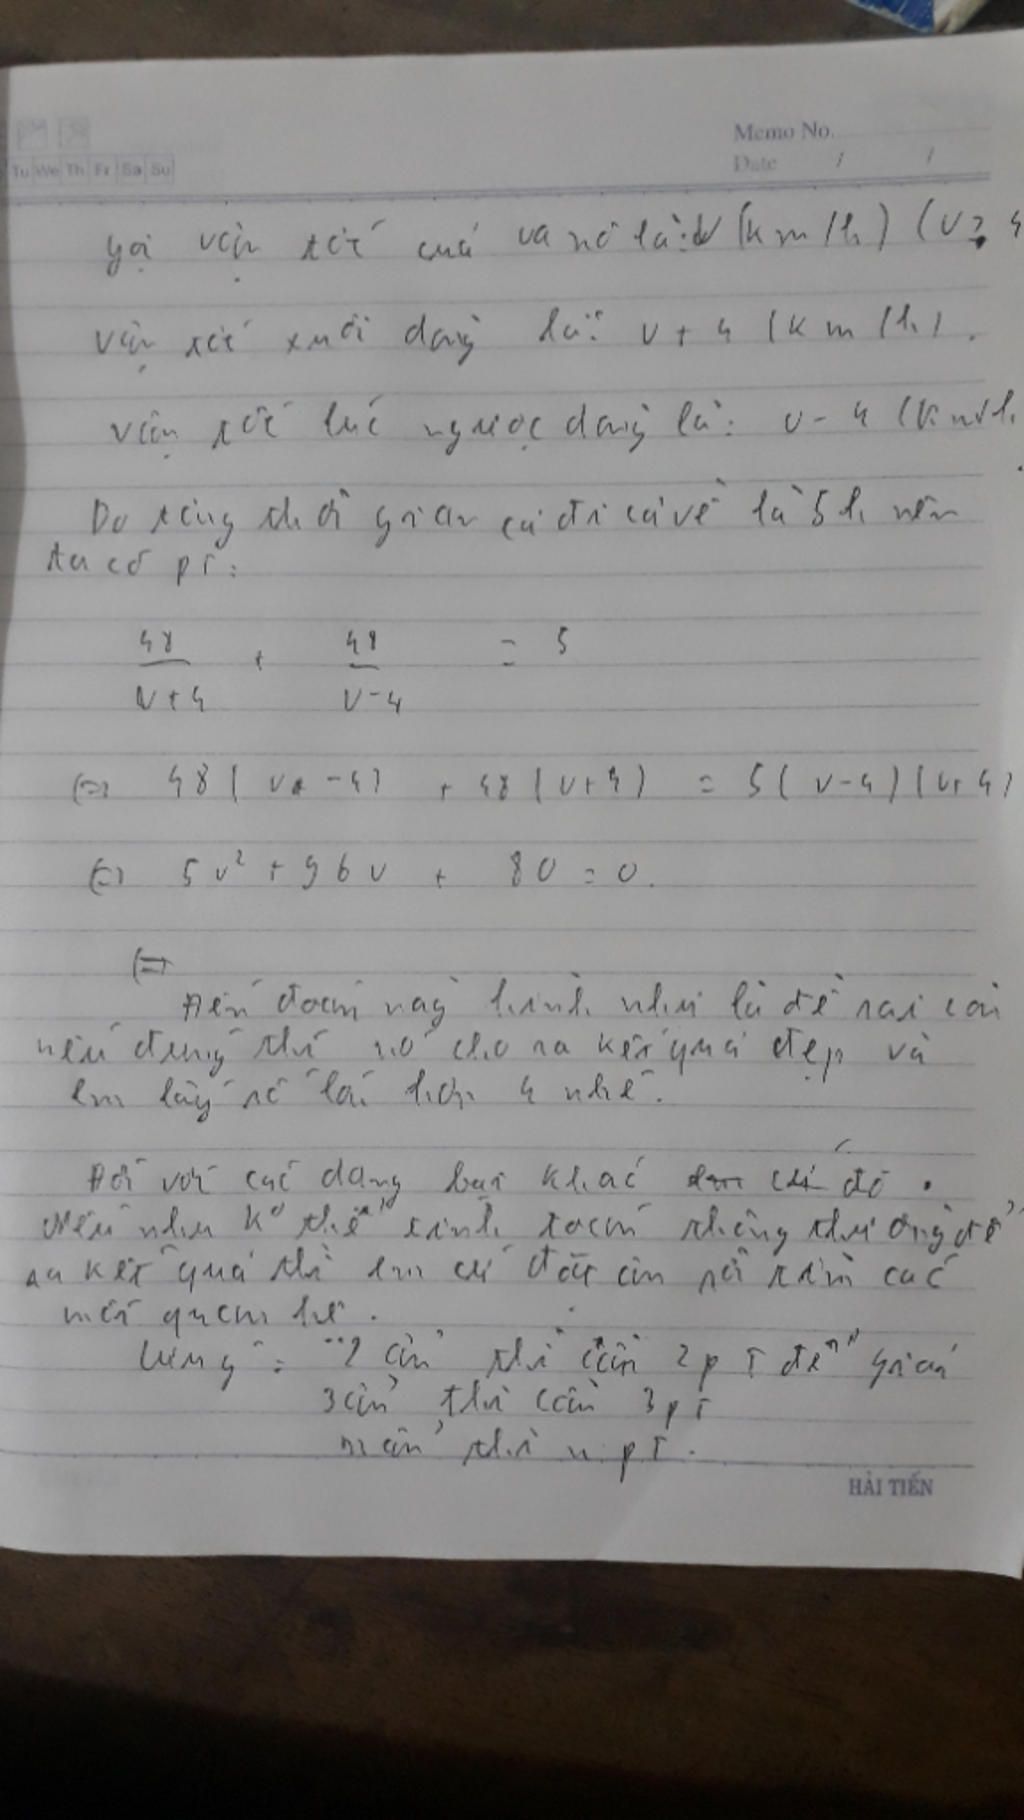 Memo No.
Tu We Th Fr Sa Su
Date / /
Gọi vận tốc của ca nô là: v (km/h) (v > 4
vận tốc xuôi dòng là: v + 4 (km/h).
vận tốc lúc ngược dòng là: v - 4 (km/h
Do tổng thời gian cả đi cả về là 5h nên
ta có pt:
48/(v+4) + 48/(v-4) = 5
⇔ 48(v-4) + 48(v+4) = 5(v-4)(v+4)
⇔ 5v² + 96v + 80 = 0.
⇔
Đến đoạn này hình như là đề sai còn
nếu đúng thì nó cho ra kết quả đẹp và
em lấy số lớn hơn 4 nhé.
Đối với các dạng bài khác cứ đó.
Nếu như k° thể tính toán thông thường để
ra kết quả thì em cứ đặt ẩn rồi tìm các
mối quan hệ.
Lưu ý: "2 ẩn thì cần 2 pt để" giải
3 ẩn thì cần 3 pt
n ẩn thì n pt.
HẢI TIẾN